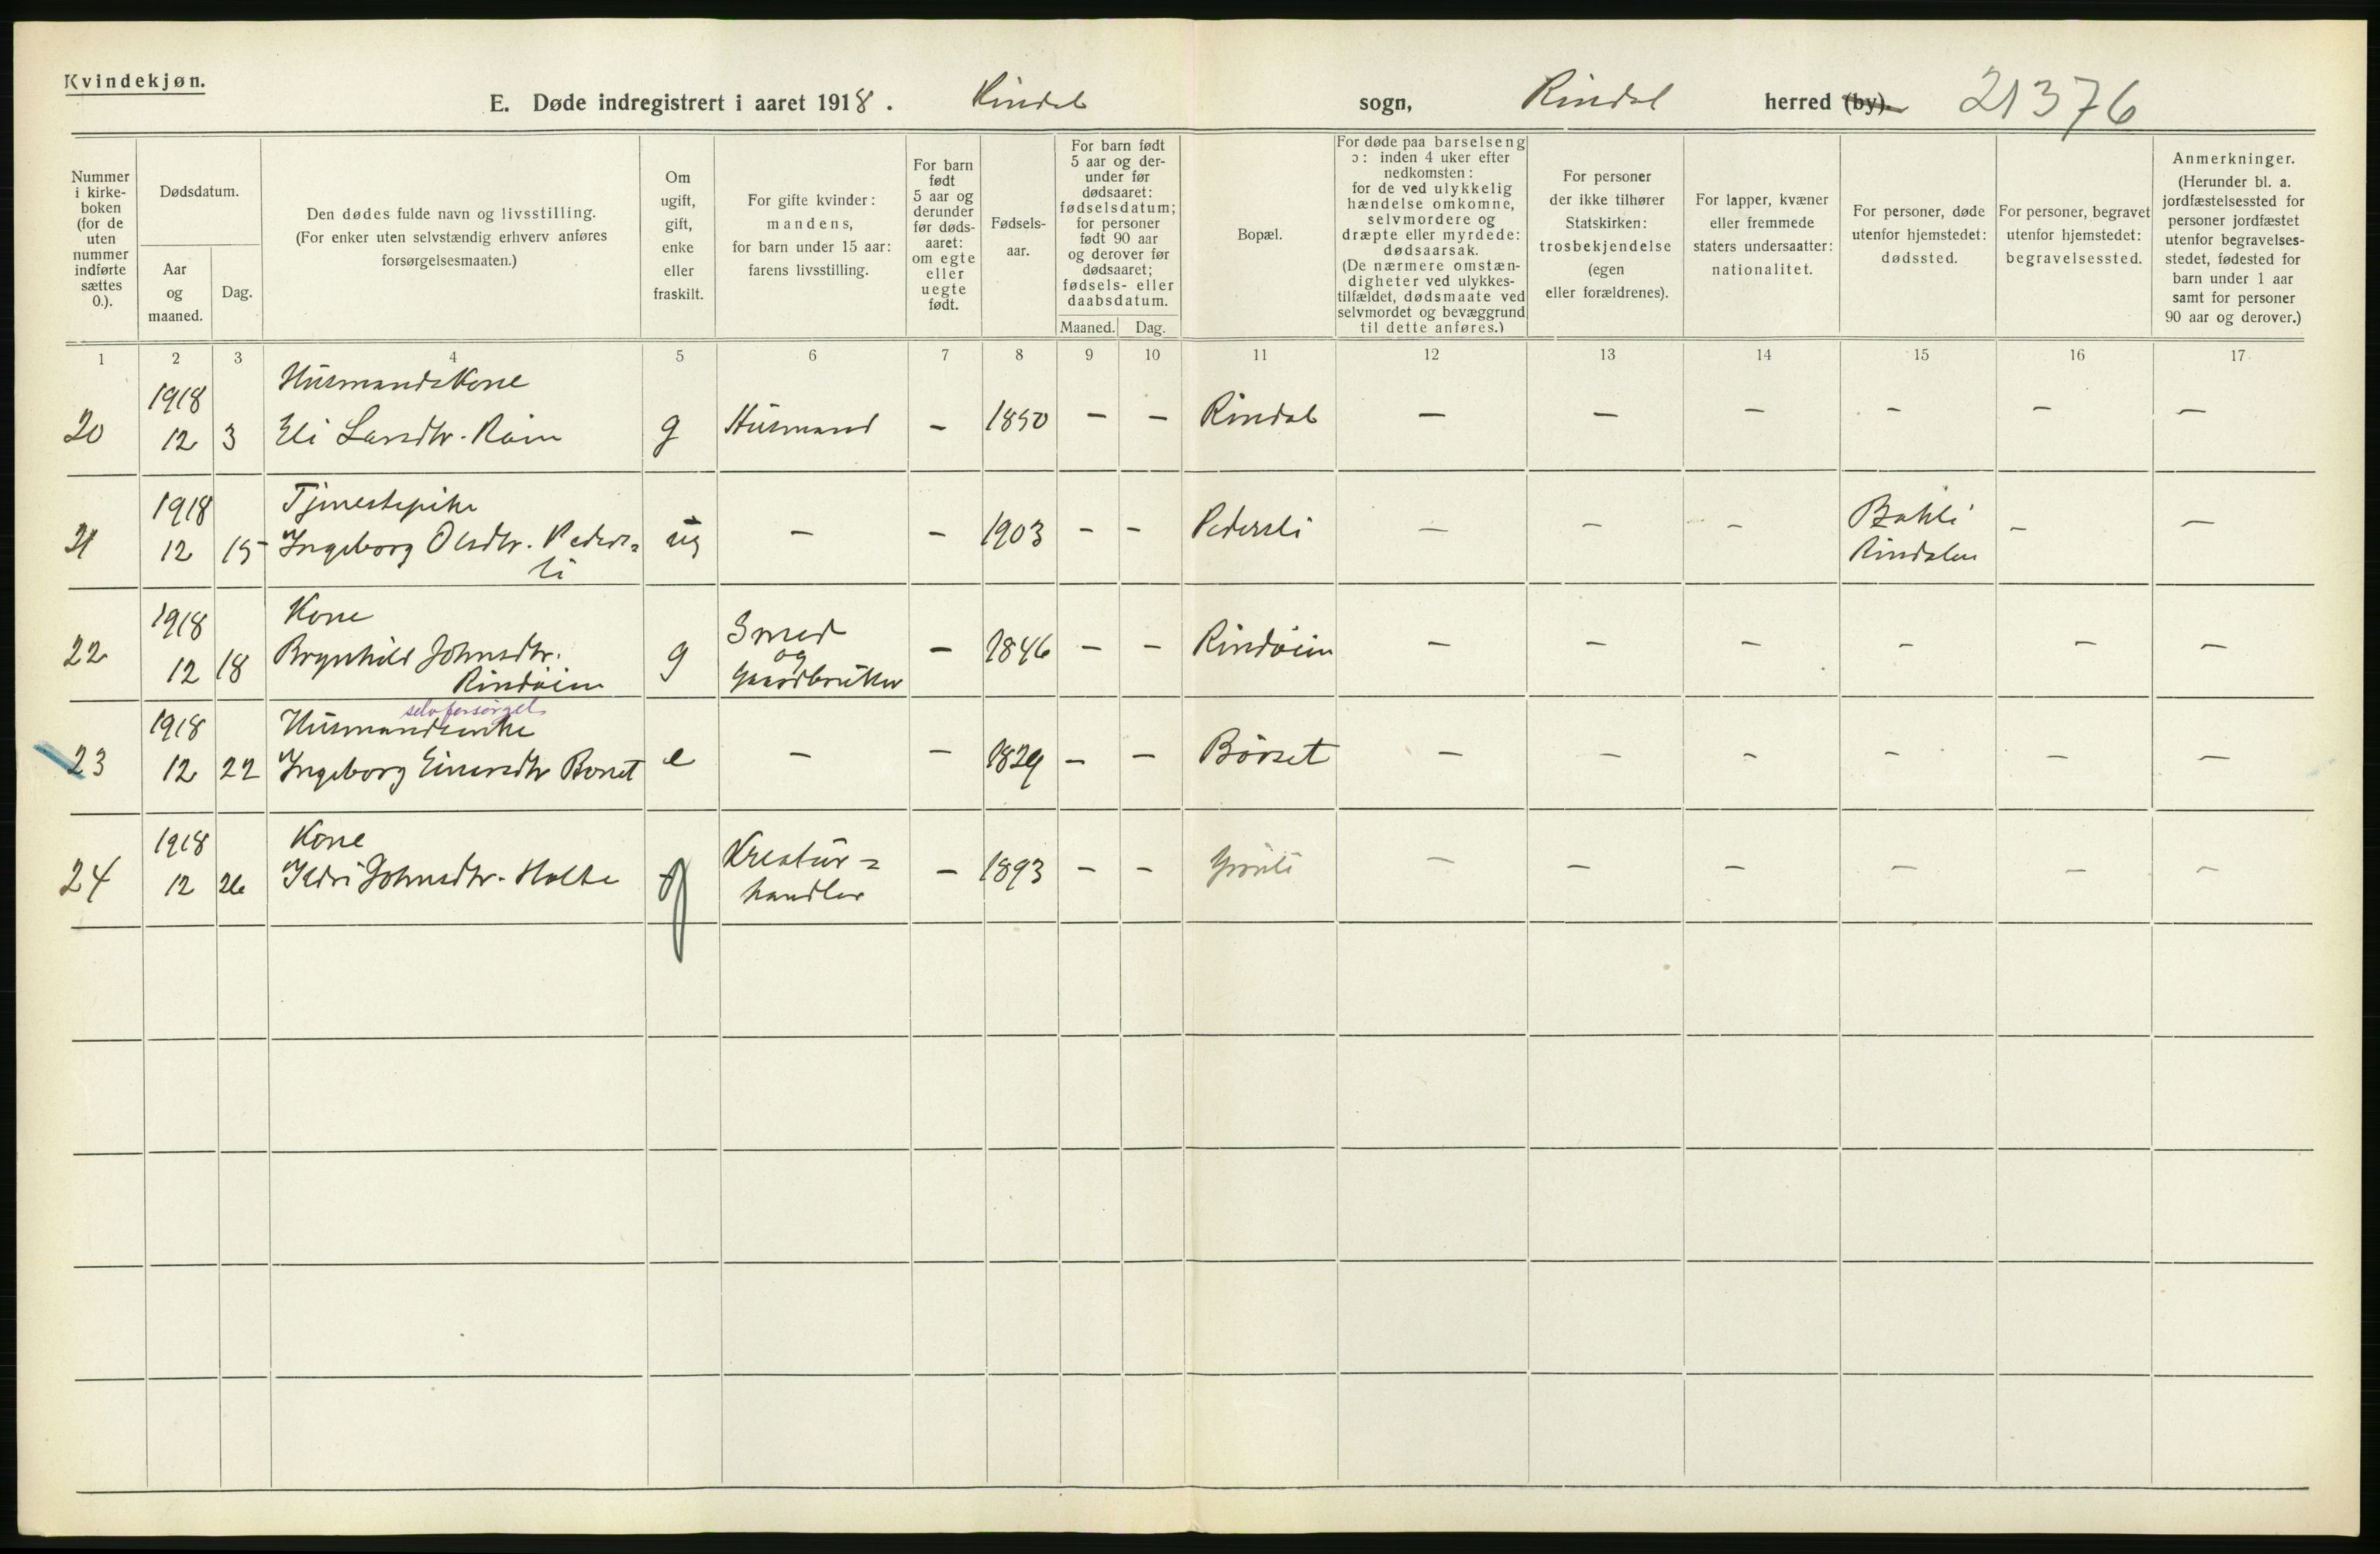 Kvindekjøn.
E. Døde indregistrert i aaret 1918. Rindal sogn, Rindal herred (by). 21376
Nummer i kirke-boken (for de uten nummer indførte sættes 0.).
Dødsdatum.
Aar og maaned.
Dag.
Den dødes fulde navn og livsstilling.
(For enker uten selvstændig erhverv anføres forsørgelsesmaaten.)
Om ugift, gift, enke eller fraskilt.
For gifte kvinder: mandens, for barn under 15 aar: farens livsstilling.
For barn født 5 aar og derunder før døds-aaret: om egte eller uegte født.
Fødsels-aar.
For barn født 5 aar og der-under før dødsaaret: fødselsdatum; for personer født 90 aar og derover før dødsaaret; fødsels- eller daabsdatum.
Maaned. Dag.
Bopæl.
For døde paa barselseng ɔ: inden 4 uker efter nedkomsten: for de ved ulykkelig hændelse omkomne, selvmordere og dræpte eller myrdede: dødsaarsak. (De nærmere omstæn-digheter ved ulykkes-tilfældet, dødsmaate ved selvmordet og bevæggrund til dette anføres.)
For personer der ikke tilhører Statskirken: trosbekjendelse (egen eller forældrenes).
For lapper, kvæner eller fremmede staters undersaatter: nationalitet.
For personer, døde utenfor hjemstedet: dødssted.
For personer, begravet utenfor hjemstedet: begravelsessted.
Anmerkninger.
(Herunder bl. a. jordfæstelsessted for personer jordfæstet utenfor begravelses-stedet, fødested for barn under 1 aar samt for personer 90 aar og derover.)
1 2 3 4 5 6 7 8 9 10 11 12 13 14 15 16 17
1918 Husmandskone
20 12 3 Eli Larsdtr. g Husmand - 1850 - - Rindal - - - - - -
1918 Tjenestepike Bakli
21 12 15 Ingeborg Olsdtr. Peders= ug - - 1903 - - Pedersli - - - Rindalen - -
li
1918 Kone Smed
22 12 18 Brynhild Johnsdtr. g og - 1846 - - Rindøim - - - - - -
Rindøim Gaardbruker
selvforsørget
1918 Husmandsenke
23 12 22 Ingeborg Einarsdtr Børset e - - 1829 - - Børset - - - - - -
1918 Kone Kreatur=
24 12 26 Ildri Johnsdtr. Holte g handler - 1893 - - Grønli - - - - - -